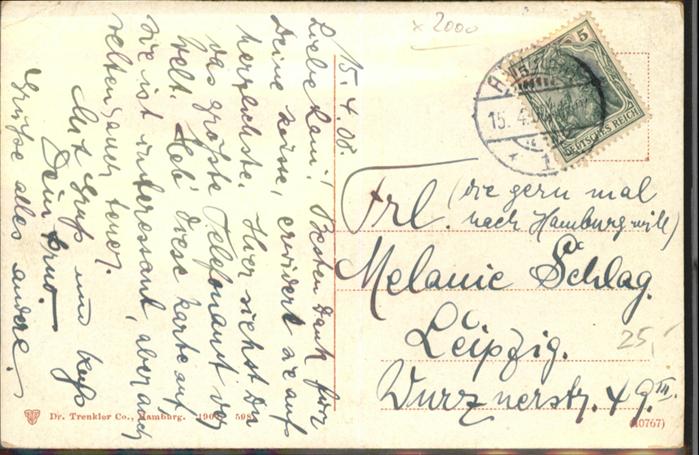 15. 4. 08.
Liebe Lani! Besten Dank für
Deine keine, erwidert sie aufs
herzlichste. Hier siehst Du
das größte Telefonamt der
Welt. Heb' diese Karte auf
sie ist interessant, aber auch
selten auch teuer.
Mit Gruß und Kuß
Dein Arno.
Grüße alles andere.
x 2000
5
15. 4.
DEUTSCHES REICH
Frl. (die gern mal
nach Hamburg will)
Melanie Schlag.
Leipzig.
Wurznerstr. 49 III.
25,-
Dr. Trenkler Co., Hamburg. 190 598
(10767)